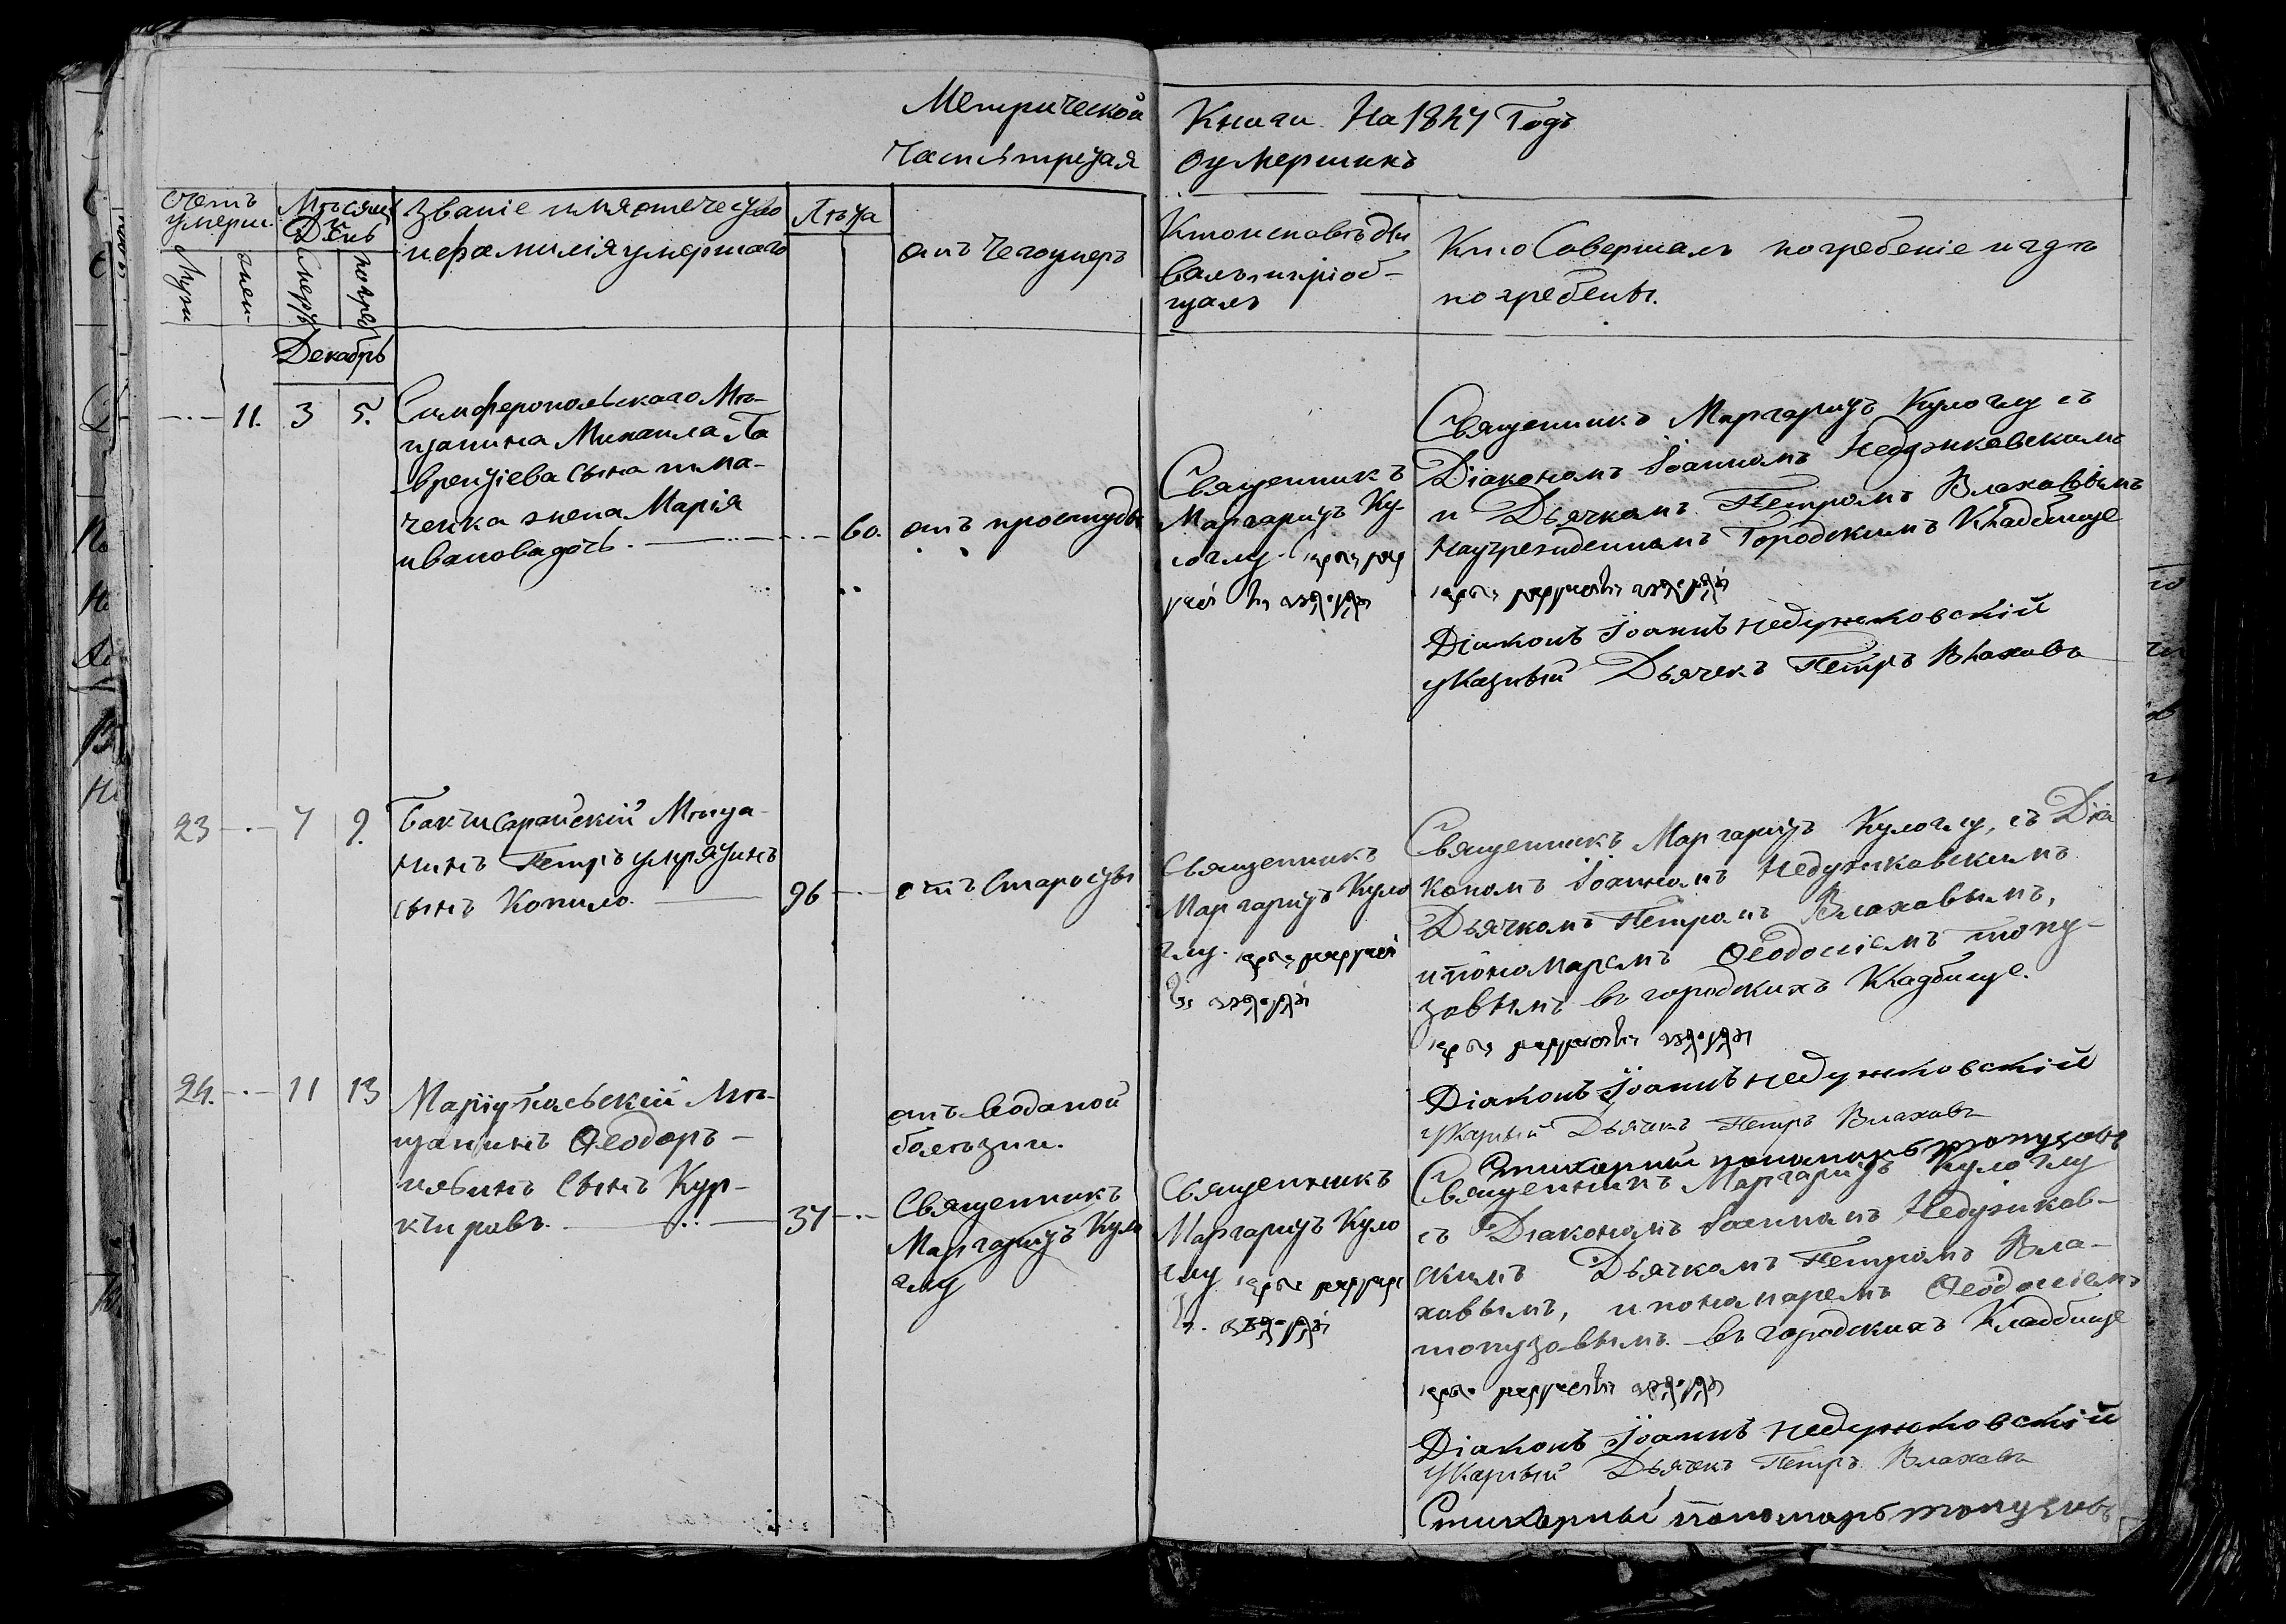 Метрической Книги На 1847 Годъ
Часть третая Оумершихъ
Счетъ умерш.
Муж
жен.
Мѣсяцъ День
Смерт
погреб
Званіе имя отечество
и фамилія умершаго
Лѣта
отъ Чего умеръ
Кто исповѣды
валъ и пріоб-
щалъ
Кто Совершалъ погребеніе и гдѣ
погребены.
Декабрь
11. 3 5.
Симферопольскаго Мѣ-
щанина Михаила Ла
врентіева Сына
ченка жена Марія
иванова дочь.
60.
отъ простуды
Священникъ
Маргаритъ Ку-
логлу.
Священникъ Маргаритъ Кулоглу съ
Діакономъ Іоанномъ Недзиковскимъ
и Дьячкомъ Петромъ Влаховымъ
Городскимъ Кладбище
Діаконъ Іоаннъ недзиковскій
указный Дьячекъ Петръ Влаховъ
23 7 9.
Бакчисарайскій Мѣща-
нинъ Петръ
сынъ Копило.
96
отъ Старости
Священникъ
Маргаритъ Куло
глу.
Священникъ Маргаритъ Кулоглу, съ Діа
кономъ Іоанномъ Недзиковскимъ
Дьячкомъ Петромъ Влаховымъ,
и пономаремъ Ѳеодосіемъ топу-
зовымъ въ городскихъ Кладбище.
Діаконъ Іоаннъ недзиковскій
указный Дьячекъ Петръ Влаховъ
Стихарный пономарь топузовъ
24. 11 13
Маріупольскій Мѣ-
щанинъ Ѳеодоръ
Сынъ Кур-
кчировъ.
37
отъ Водяной
болезни.
Священникъ
Маргаритъ Куло
глу
Священникъ
Маргаритъ Куло
глу
Священникъ Маргаритъ Кулоглу
съ Діакономъ Іоанномъ Недзиков-
скимъ Дьячкомъ Петромъ Вла-
ховымъ, и пономаремъ Ѳеодосіемъ
топузовымъ въ городскихъ Кладбище
Діаконъ Іоаннъ недзиковскій
указный Дьячекъ Петръ Влаховъ
Стихарный пономарь топузовъ